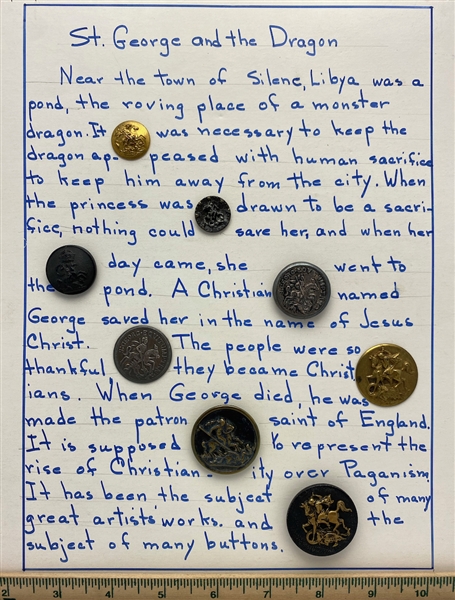 St. George and the Dragon
Near the town of Silene, Libya was a
pond, the roving place of a monster
dragon. It was necessary to keep the
dragon ap- peased with human sacrifice
to keep him away from the city. When
the princess was drawn to be a sacri-
fice, nothing could save her, and when her
day came, she went to
the pond. A Christian named
George saved her in the name of Jesus
Christ. The people were so
thankful, they became Christ
ians. When George died, he was
made the patron saint of England.
It is supposed to represent the
rise of Christian- ity over Paganism.
It has been the subject of many
great artists' works. and the
subject of many buttons.
2 3 4 5 6 7 8 9 10